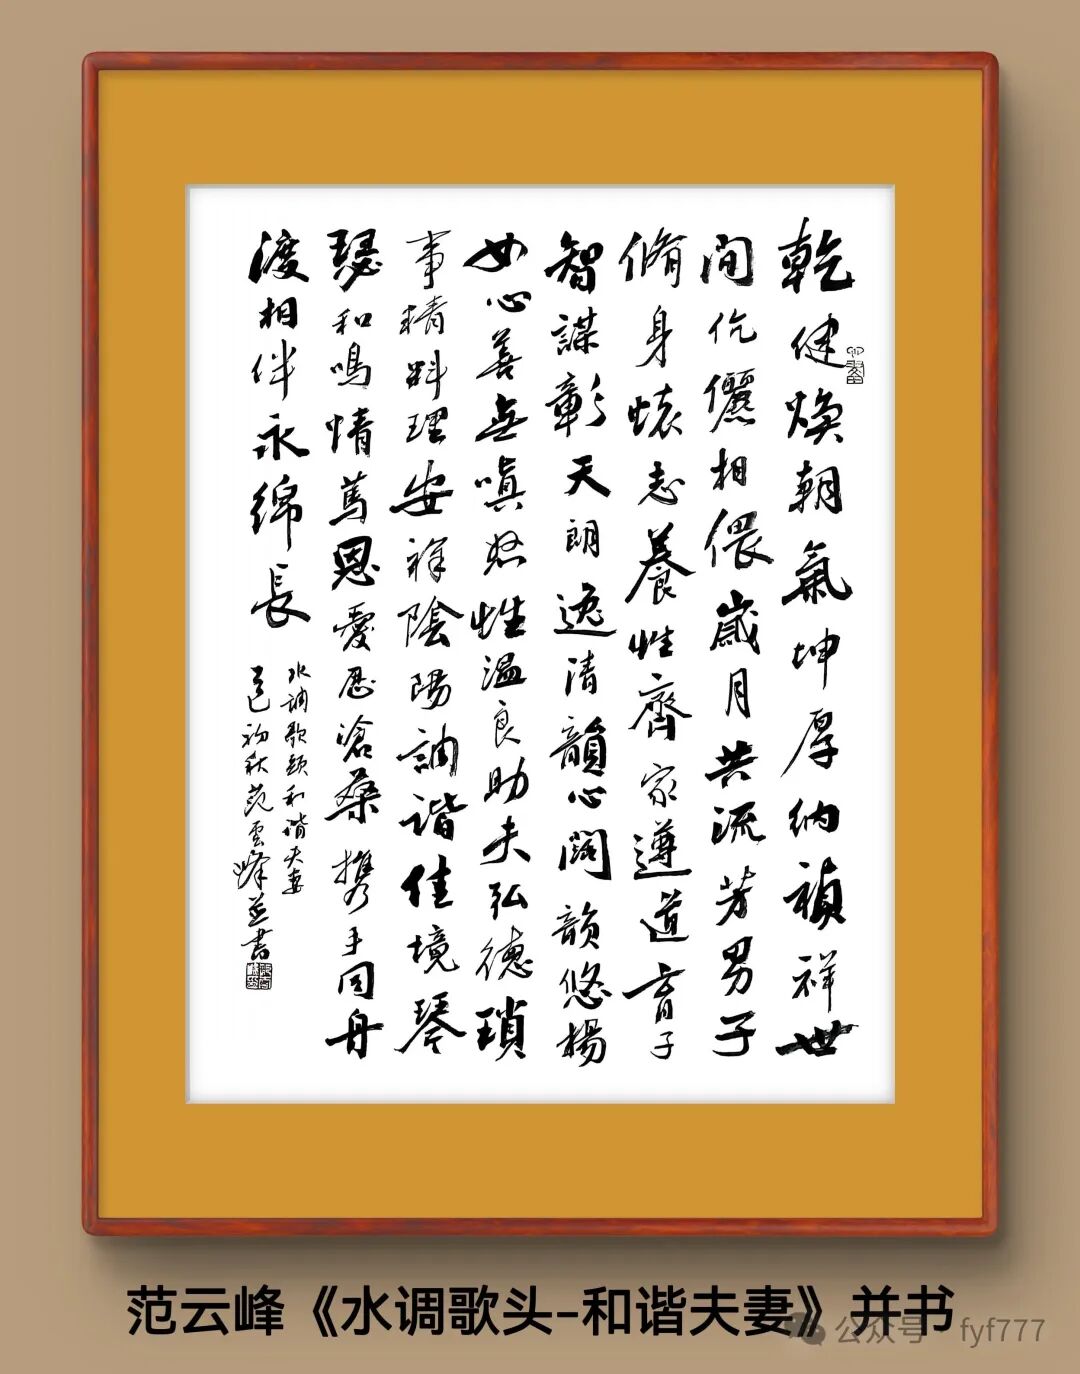 乾健煥朝氣坤厚納禎祥世
間伉儷相偎歲月共流芳男子
脩身懷志養性齊家遵道育子
智謀彰天朗逸清韻心闊韻悠揚
女心善無嗔怒性溫良助夫弘德瑣
事精料理安祥陰陽調諧佳境琴
瑟和鳴情篤恩愛歷滄桑攜手同舟
渡相伴永綿長
水調歌頭和諧夫妻
乙巳初秋范雲峰並書
范云峰《水调歌头-和谐夫妻》并书
公众号·fyf777